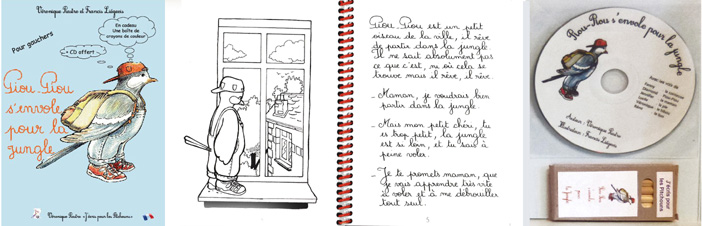 Véronique Piedre et Francis Laigneis
Pour gauchers
En cadeau
Une boîte de
crayons de couleur
+ CD offert
Piou-Piou
s'envole
pour la
jungle
Piou-Piou est un petit
oiseau de la ville, il rêve
de partir dans la jungle.
Il ne sait absolument pas
ce que c'est, ni où cela se
trouve mais il rêve, il rêve.
- Maman, je voudrais bien
partir dans la jungle.
- Mais mon petit chéri, tu
es trop petit, la jungle
est si loin, et tu sais à
peine voler.
- Je te promets maman, que
je vais apprendre très vite
à voler et à me débrouiller
tout seul.
Piou-Piou s'envole pour la jungle
Avec les voix de
J'écris pour
les Pitchouns